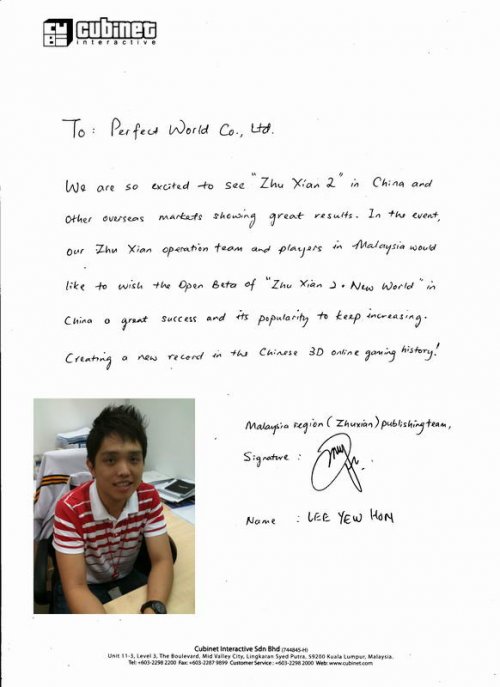 cubinet
interactive
To: Perfect World Co., Ltd.
We are so excited to see "Zhu Xian 2" in China and
other overseas markets showing great results. In the event,
our Zhu Xian operation team and players in Malaysia would
like to wish the Open Beta of "Zhu Xian 2 • New World" in
China a great success and its popularity to keep increasing.
Creating a new record in the Chinese 3D online gaming history!
Malaysia region (Zhuxian) publishing team,
Signature :
Name : LEE YEW HON
Cubinet Interactive Sdn Bhd (744845-H)
Unit 11-3, Level 3, The Boulevard, Mid Valley City, Lingkaran Syed Putra, 59200 Kuala Lumpur, Malaysia.
Tel: +603-2298 2200 Fax: +603-2287 9899 Customer Service : +603-2298 2000 Web: www.cubinet.com